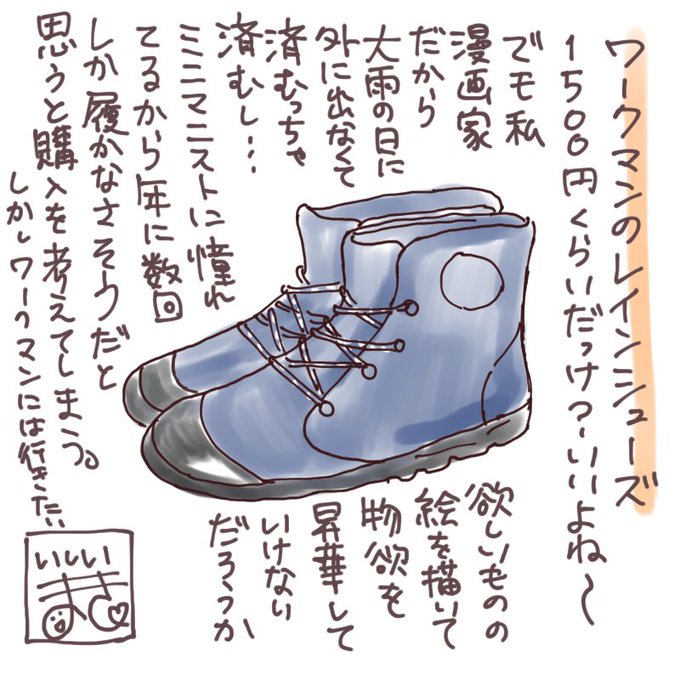 ワークマンのレインシューズ
1500円くらいだっけ?~いいよね~
でも私
漫画家
だから
大雨の日に
外に出なくて
済むっちゃ
済むし…
ミニマニストに憧れ
てるから年に数回
しか履かなさそうだと
思うと購入を考えてしまう。
しかしワークマンには行きたい
欲しいものの
絵を描いて
物欲を
昇華して
いけない
だろうか
いしい
まき